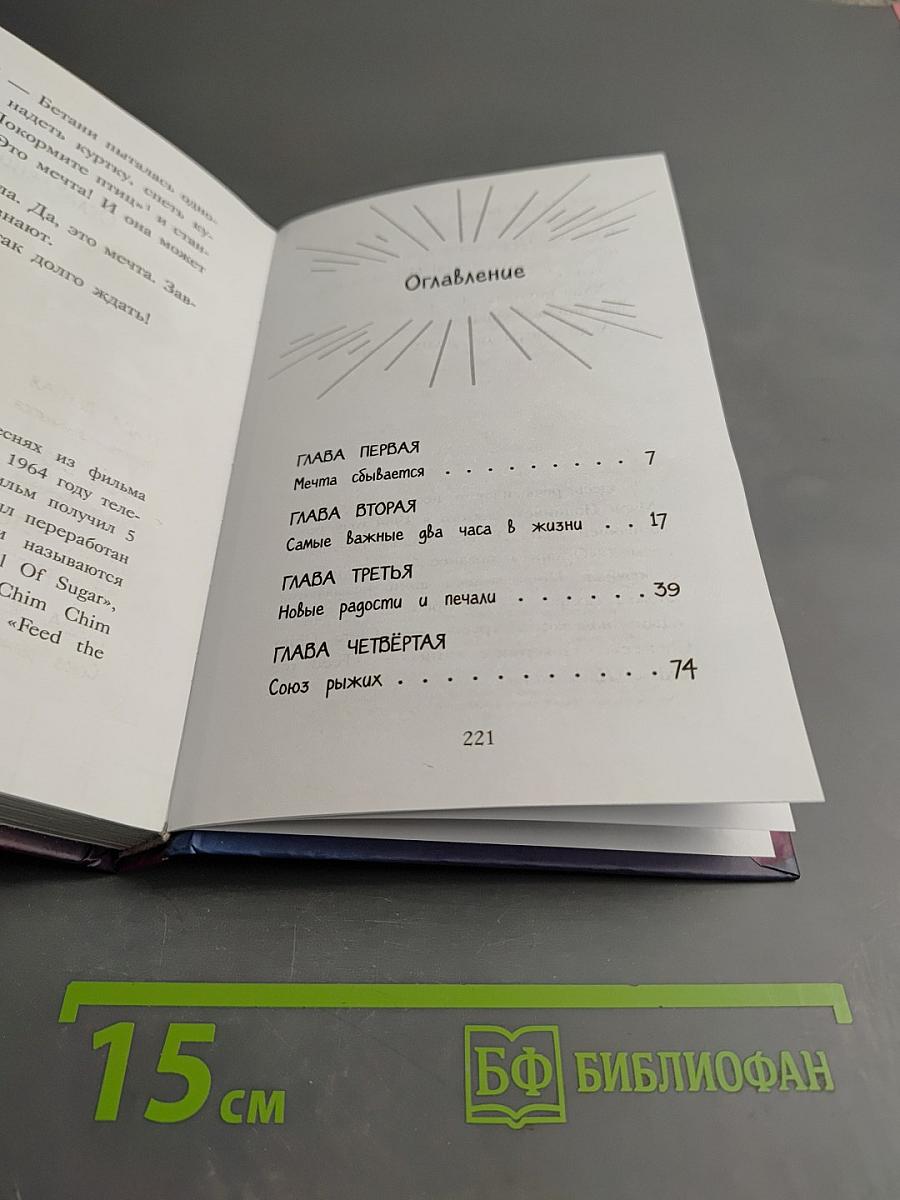 — Бетани пыталась одно-
надеть куртку, спеть ку-
Покормите птиц»¹ и стан-
Это мечта! И она может
Да, это мечта. Зав-
знают.
так долго ждать!
из фильма
1964 году теле-
получил 5
переработан
называются
Of Sugar»,
Chim Chim
«Feed the
Оглавление
ГЛАВА ПЕРВАЯ
Мечта сбывается . . . . . . . . . 7
ГЛАВА ВТОРАЯ
Самые важные два часа в жизни . . 17
ГЛАВА ТРЕТЬЯ
Новые радости и печали . . . . . . 39
ГЛАВА ЧЕТВЁРТАЯ
Союз рыжих . . . . . . . . . . . 74
221
15 см
БФ БИБЛИОФАН